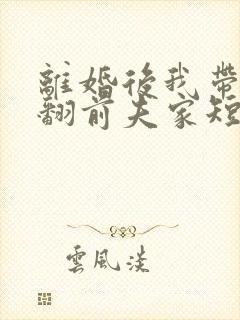 離婚後我帶
翻前夫家短
雲風淡